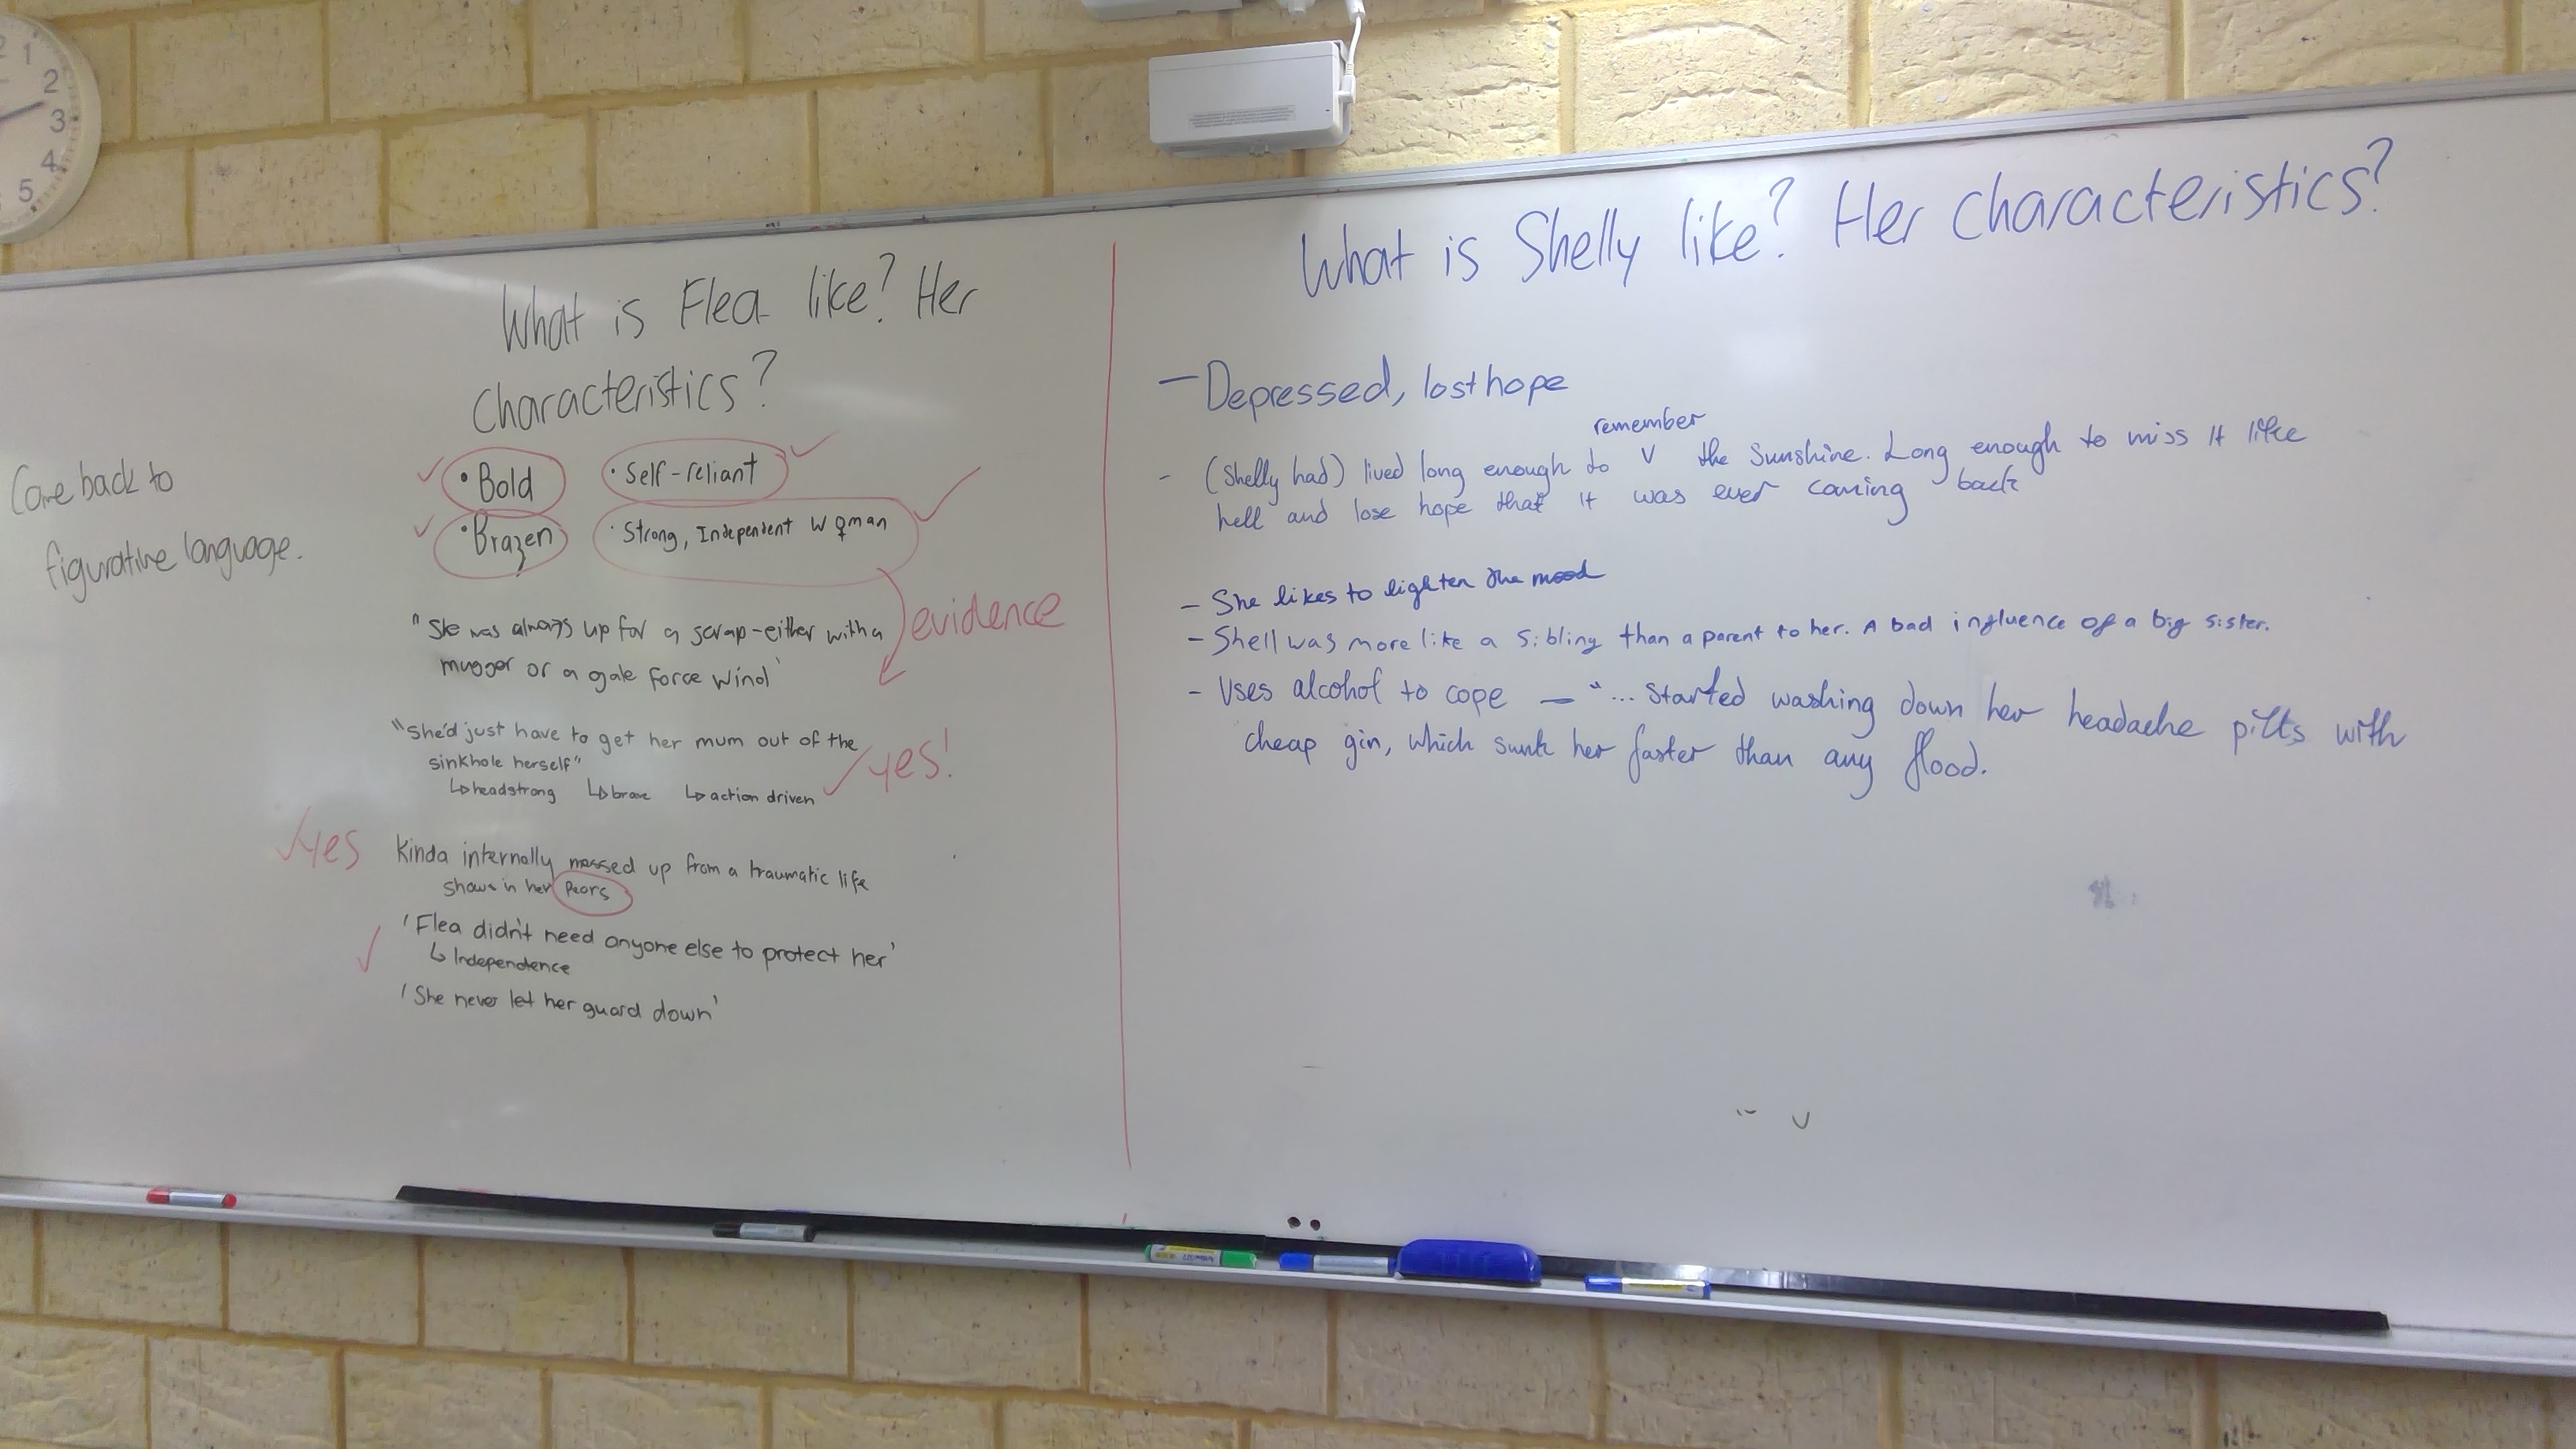 1
2
3
4
5
Come back to
figurative language.
What is Flea like? Her
Characteristics?
• Bold
• Self-reliant
• Brazen
• Strong, Independent Woman
"She was always up for a scrap - either with a
mugger or a gale force wind'
evidence
"She'd just have to get her mum out of the
sinkhole herself"
↳ headstrong ↳ brave ↳ action driven
yes!
yes
Kinda internally messed up from a traumatic life
shows in her fears
'Flea didn't need anyone else to protect her'
↳ Independence
'She never let her guard down'
What is Shelly like? Her characteristics?
- Depressed, lost hope
remember
- (Shelly had) lived long enough to V the Sunshine. Long enough to miss it like
hell and lose hope that it was ever coming back
- She likes to lighten the mood
- Shell was more like a sibling than a parent to her. A bad influence of a big sister.
- Uses alcohol to cope - "... started washing down her headache pills with
cheap gin, which sunk her faster than any flood.